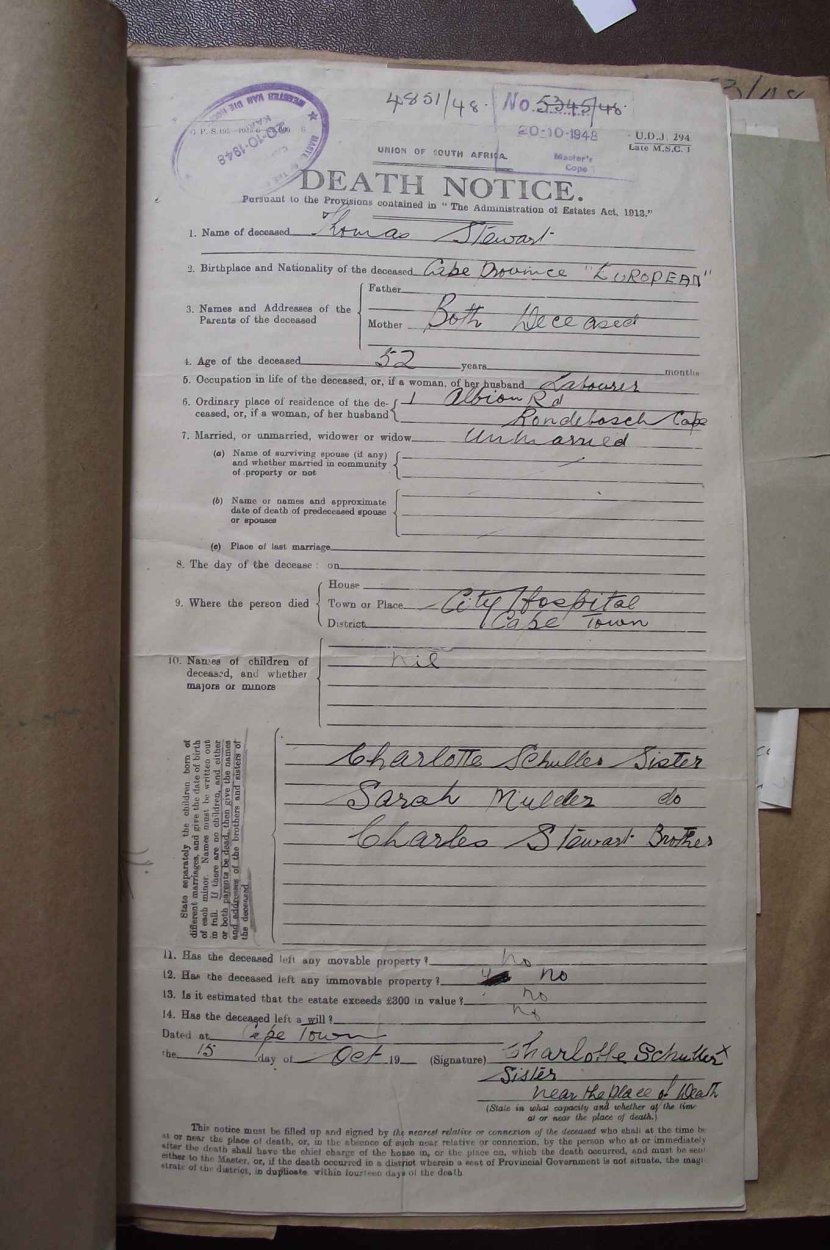 4851/48.
No. 5345/48
20-10-1948
Master's
Cape
20-10-1948
U.D.J. 294
Late M.S.C. 1
UNION OF SOUTH AFRICA.
DEATH NOTICE.
Pursuant to the Provisions contained in "The Administration of Estates Act, 1913."
1. Name of deceased Thomas Stewart
2. Birthplace and Nationality of the deceased Cape Province "EUROPEAN"
3. Names and Addresses of the Parents of the deceased
Father
Mother Both Deceased
4. Age of the deceased 52 years months
5. Occupation in life of the deceased, or, if a woman, of her husband Labourer
6. Ordinary place of residence of the de-
ceased, or, if a woman, of her husband
1 Albion Rd
Rondebosch Cape
7. Married, or unmarried, widower or widow Unmarried
(a) Name of surviving spouse (if any)
and whether married in community
of property or not
(b) Name or names and approximate
date of death of predeceased spouse
or spouses
(c) Place of last marriage
8. The day of the decease: on
9. Where the person died
House
Town or Place City Hospital
District Cape Town
10. Names of children of
deceased, and whether
majors or minors
nil
State separately the children born of
different marriages, and give the date of birth
of each minor. Names must be written out
in full. If there are no children, and either
or both parents be dead, then give the names
and addresses of the brothers and sisters of
the deceased.
Charlotte Schuller Sister
Sarah Mulder do
Charles Stewart Brother
11. Has the deceased left any movable property? no
12. Has the deceased left any immovable property? no
13. Is it estimated that the estate exceeds £300 in value? no
14. Has the deceased left a will? no
Dated at Cape Town
the 15 day of Oct 19 (Signature) Charlotte Schuller x
Sister
near the place of Death
(State in what capacity and whether at the time
at or near the place of death.)
This notice must be filled up and signed by the nearest relative or connexion of the deceased who shall at the time be
at or near the place of death, or, in the absence of such near relative or connexion, by the person who at or immediately
after the death shall have the chief charge of the house in, or the place on, which the death occurred, and must be sent
either to the Master, or, if the death occurred in a district wherein a seat of Provincial Government is not situate, the magi
strate of the district, in duplicate within fourteen days of the death